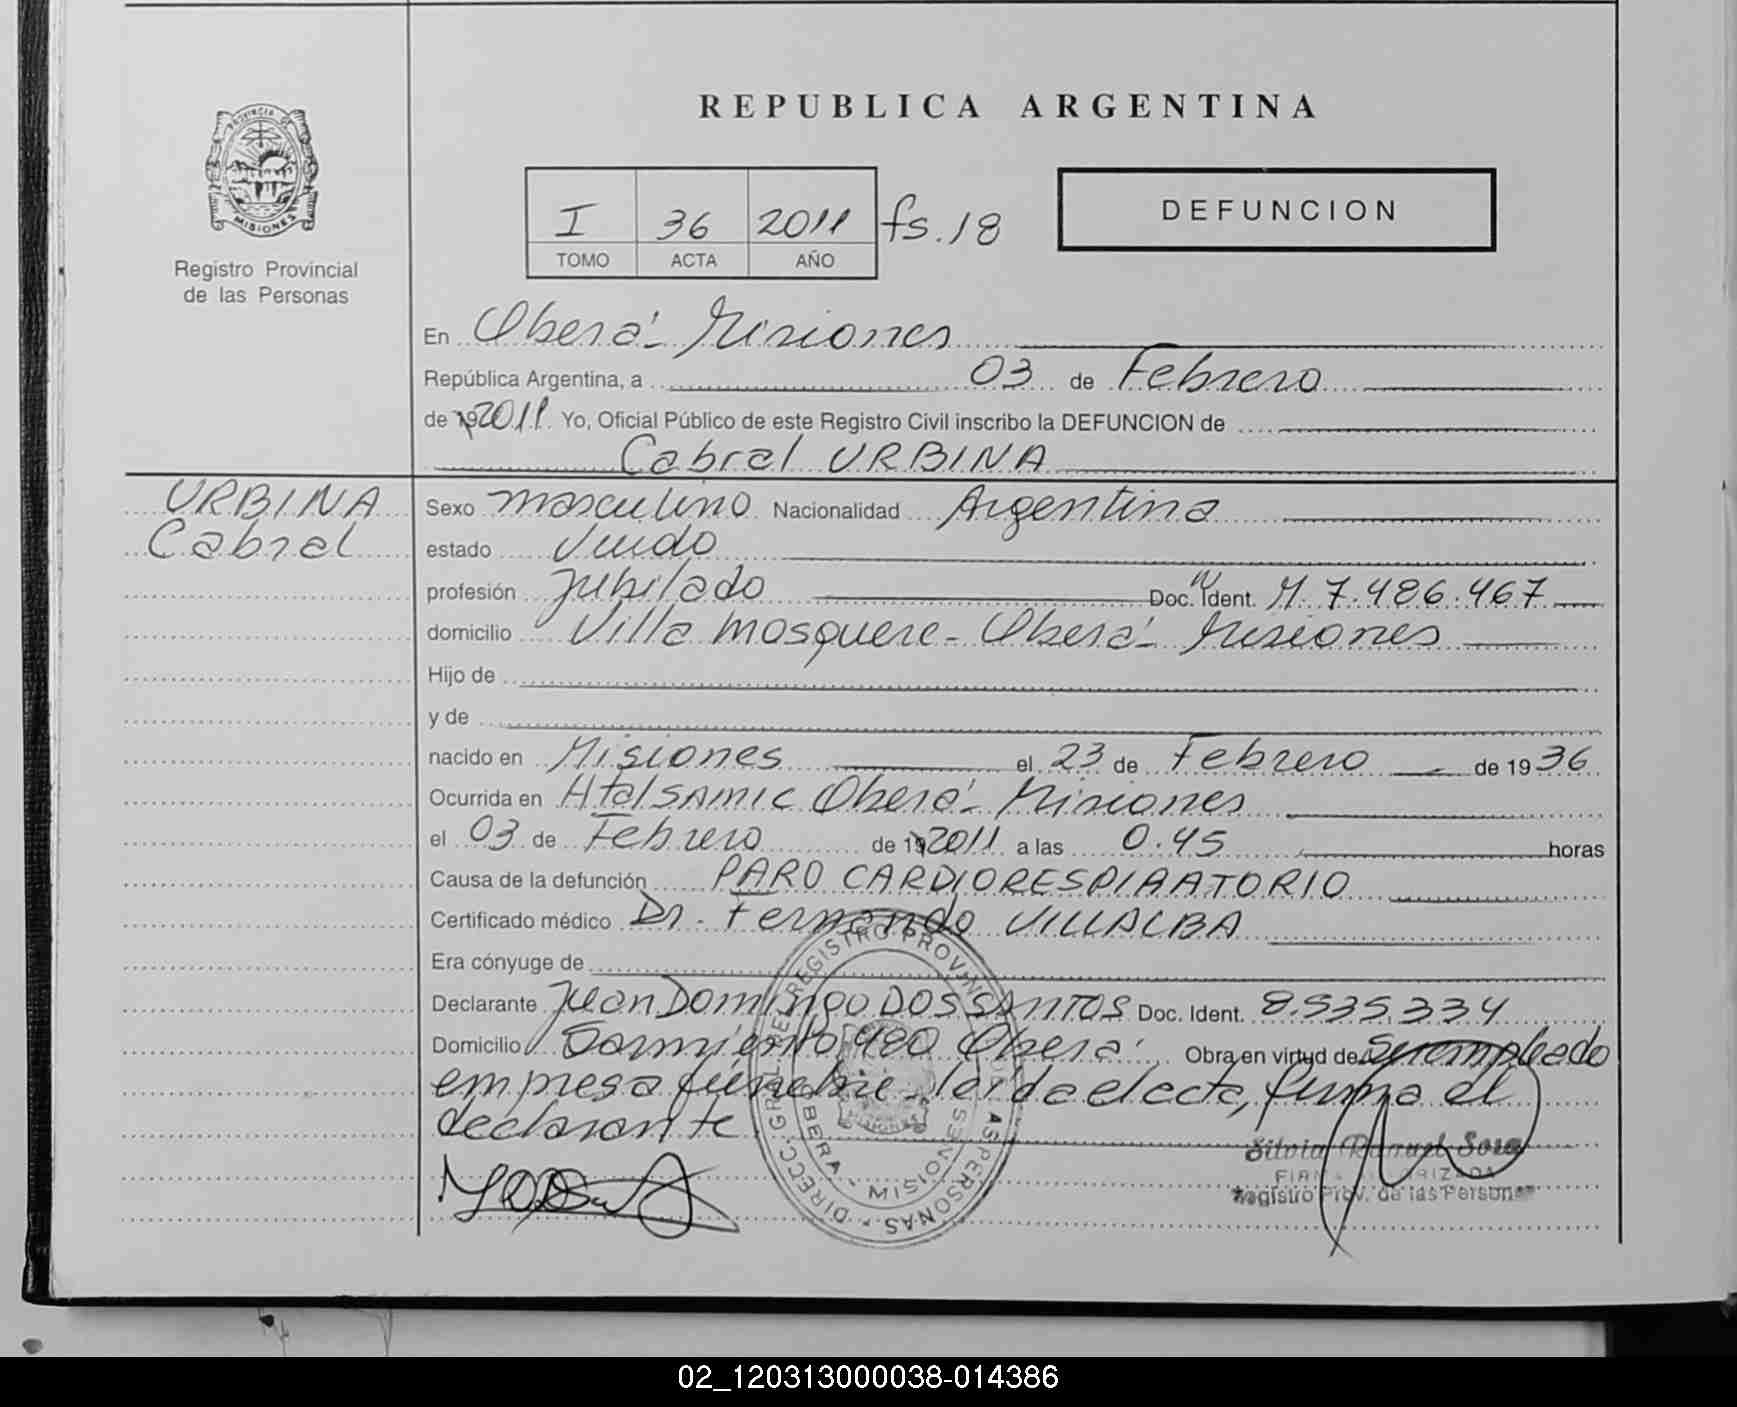 REPUBLICA ARGENTINA
PROVINCIA DE
MISIONES
Registro Provincial
de las Personas
I 36 2011 fs. 18
TOMO ACTA AÑO
DEFUNCION
En Oberá - Misiones
República Argentina, a 03 de Febrero
de 192011 Yo, Oficial Público de este Registro Civil inscribo la DEFUNCION de
Cabral URBINA
URBINA
Cabral
Sexo masculino Nacionalidad Argentina
estado Viudo
profesión Jubilado Doc. Ident. M. 7.486.467
domicilio Villa Mosquere - Oberá - Misiones
Hijo de
y de
nacido en Misiones el 23 de Febrero de 1936
Ocurrida en Htal SAMIC Oberá - Misiones
el 03 de Febrero de 192011 a las 0.45 horas
Causa de la defunción PARO CARDIORESPIRATORIO
Certificado médico Dr. Fernando VILLALBA
Era cónyuge de
Declarante Juan Domingo DOS SANTOS Doc. Ident. 8.535.334
Domicilio Sarmiento 980 Oberá Obra en virtud de Ser empleado
empresa fúnebre - leída el acta, firma el
declarante
DIRECC. GRAL. DEL REGISTRO PROVINC. DE LAS PERSONAS
OBERA - MISIONES
Silvia Raquel Sosa
FIRMA AUTORIZADA
Registro Prov. de las Personas
02_120313000038-014386